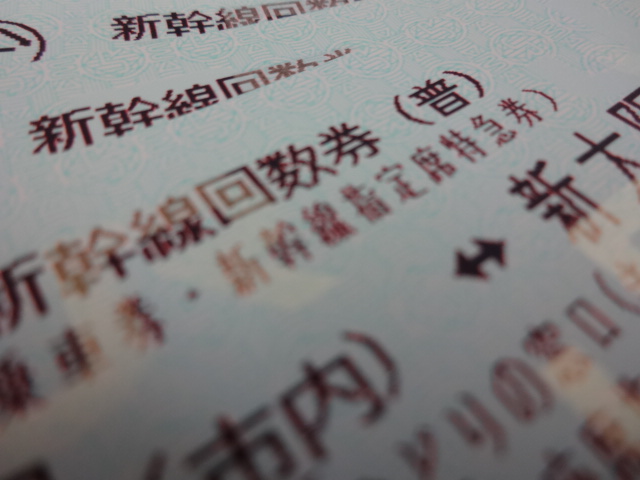 新幹線回数
新幹線回数
新幹線回数券(普)
乗車券・新幹線指定席特急券)
新大阪
(市内)
みどりの窓口(